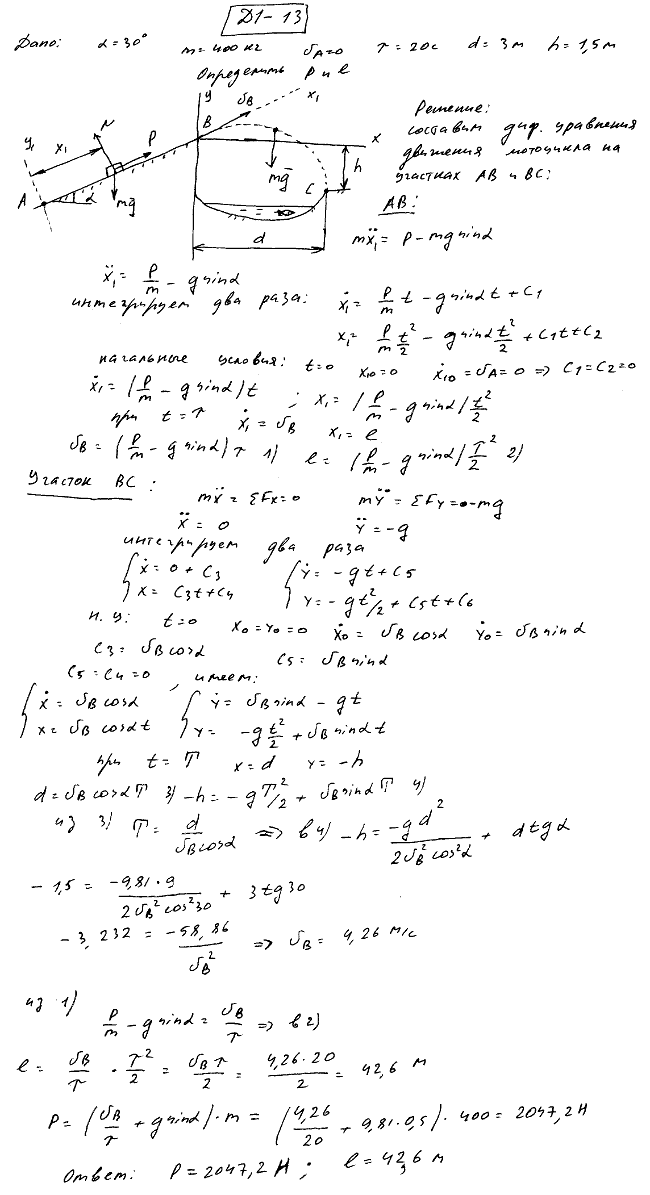 Д1-13
Дано: α=30° m=400 кг υA=0 τ=20с d=3м h=1,5м
Определить P и l
Решение:
составим диф. уравнения
движения мотоцикла на
участках AB и BC:
AB:
mẍ₁ = P - mg sinα
y x₁ υB B N P y₁ x₁ x mg̅ C h A α mg̅ d
ẍ₁ = P/m - g sinα
интегрируем два раза: ẋ₁ = P/m t - g sinα t + C1
x₁ = P/m t²/2 - g sinα t²/2 + C1t + C2
начальные условия: t=0 x10=0 ẋ10=υA=0 => C1=C2=0
ẋ₁ = (P/m - g sinα)t ; x₁ = (P/m - g sinα) t²/2
при t=τ ẋ₁=υB x₁=l
υB = (P/m - g sinα)τ 1) l = (P/m - g sinα) τ²/2 2)
Участок BC:
mẍ = ΣFx=0 mÿ = ΣFy=0-mg
ẍ = 0 ÿ = -g
интегрируем два раза
ẋ = 0 + C3 ẏ = -gt + C5
x = C3t + C4 y = -gt²/2 + C5t + C6
н.у: t=0 x0=y0=0 ẋ0 = υB cosα ẏ0 = υB sinα
C3 = υB cosα C5 = υB sinα
C5=C4=0, имеем:
ẋ = υB cosα ẏ = υB sinα - gt
x = υB cosα t y = -g t²/2 + υB sinα t
при t=T x=d y=-h
d = υB cosα T 3) -h = -gT²/2 + υB sinα T 4)
из 3) T = d/(υB cosα) => в 4) -h = -gd²/(2υB² cos²α) + d tgα
-1,5 = -9,81·9/(2υB² cos²30) + 3 tg30
-3,232 = -58,86/υB² => υB = 4,26 м/с
из 1)
P/m - g sinα = υB/τ => в 2)
l = υB/τ · τ²/2 = υBτ/2 = 4,26·20/2 = 42,6 м
P = (υB/τ + g sinα)·m = (4,26/20 + 9,81·0,5)·400 = 2047,2 Н
Ответ: P = 2047,2 Н; l = 42,6 м